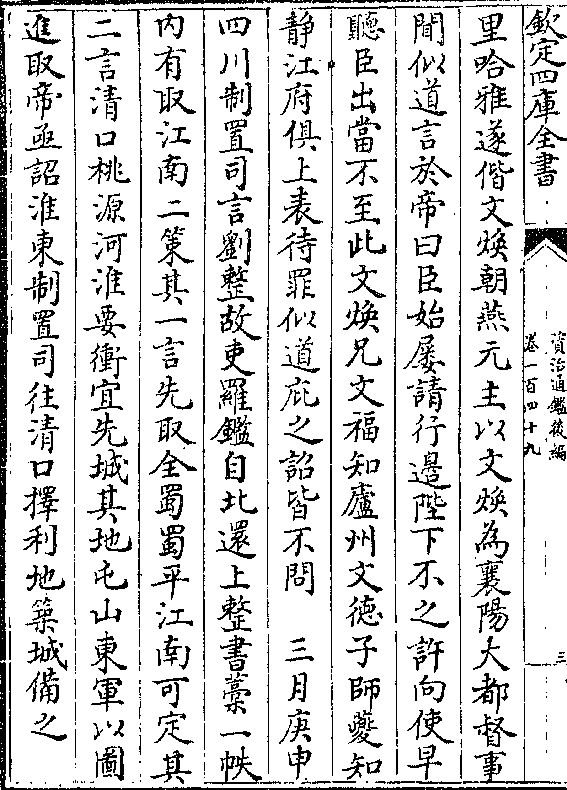 欽定四庫全書
資治通鑑後編
卷一百四十九
三
里哈雅遂偕文焕朝燕元主以文焕為襄陽大都督事
聞似道言於帝曰臣始屡請行邉陛下不之許向使早
聽臣出當不至此文焕兄文福知廬州文德子師夔知
静江府俱上表待罪似道庇之詔皆不問　三月庚申
四川制置司言劉整故吏羅鑑自北還上整書藁一帙
内有取江南二策其一言先取全蜀蜀平江南可定其
二言清口桃源河淮要衝宜先城其地屯山東軍以圖
進取帝亟詔淮東制置司往清口擇利地築城備之